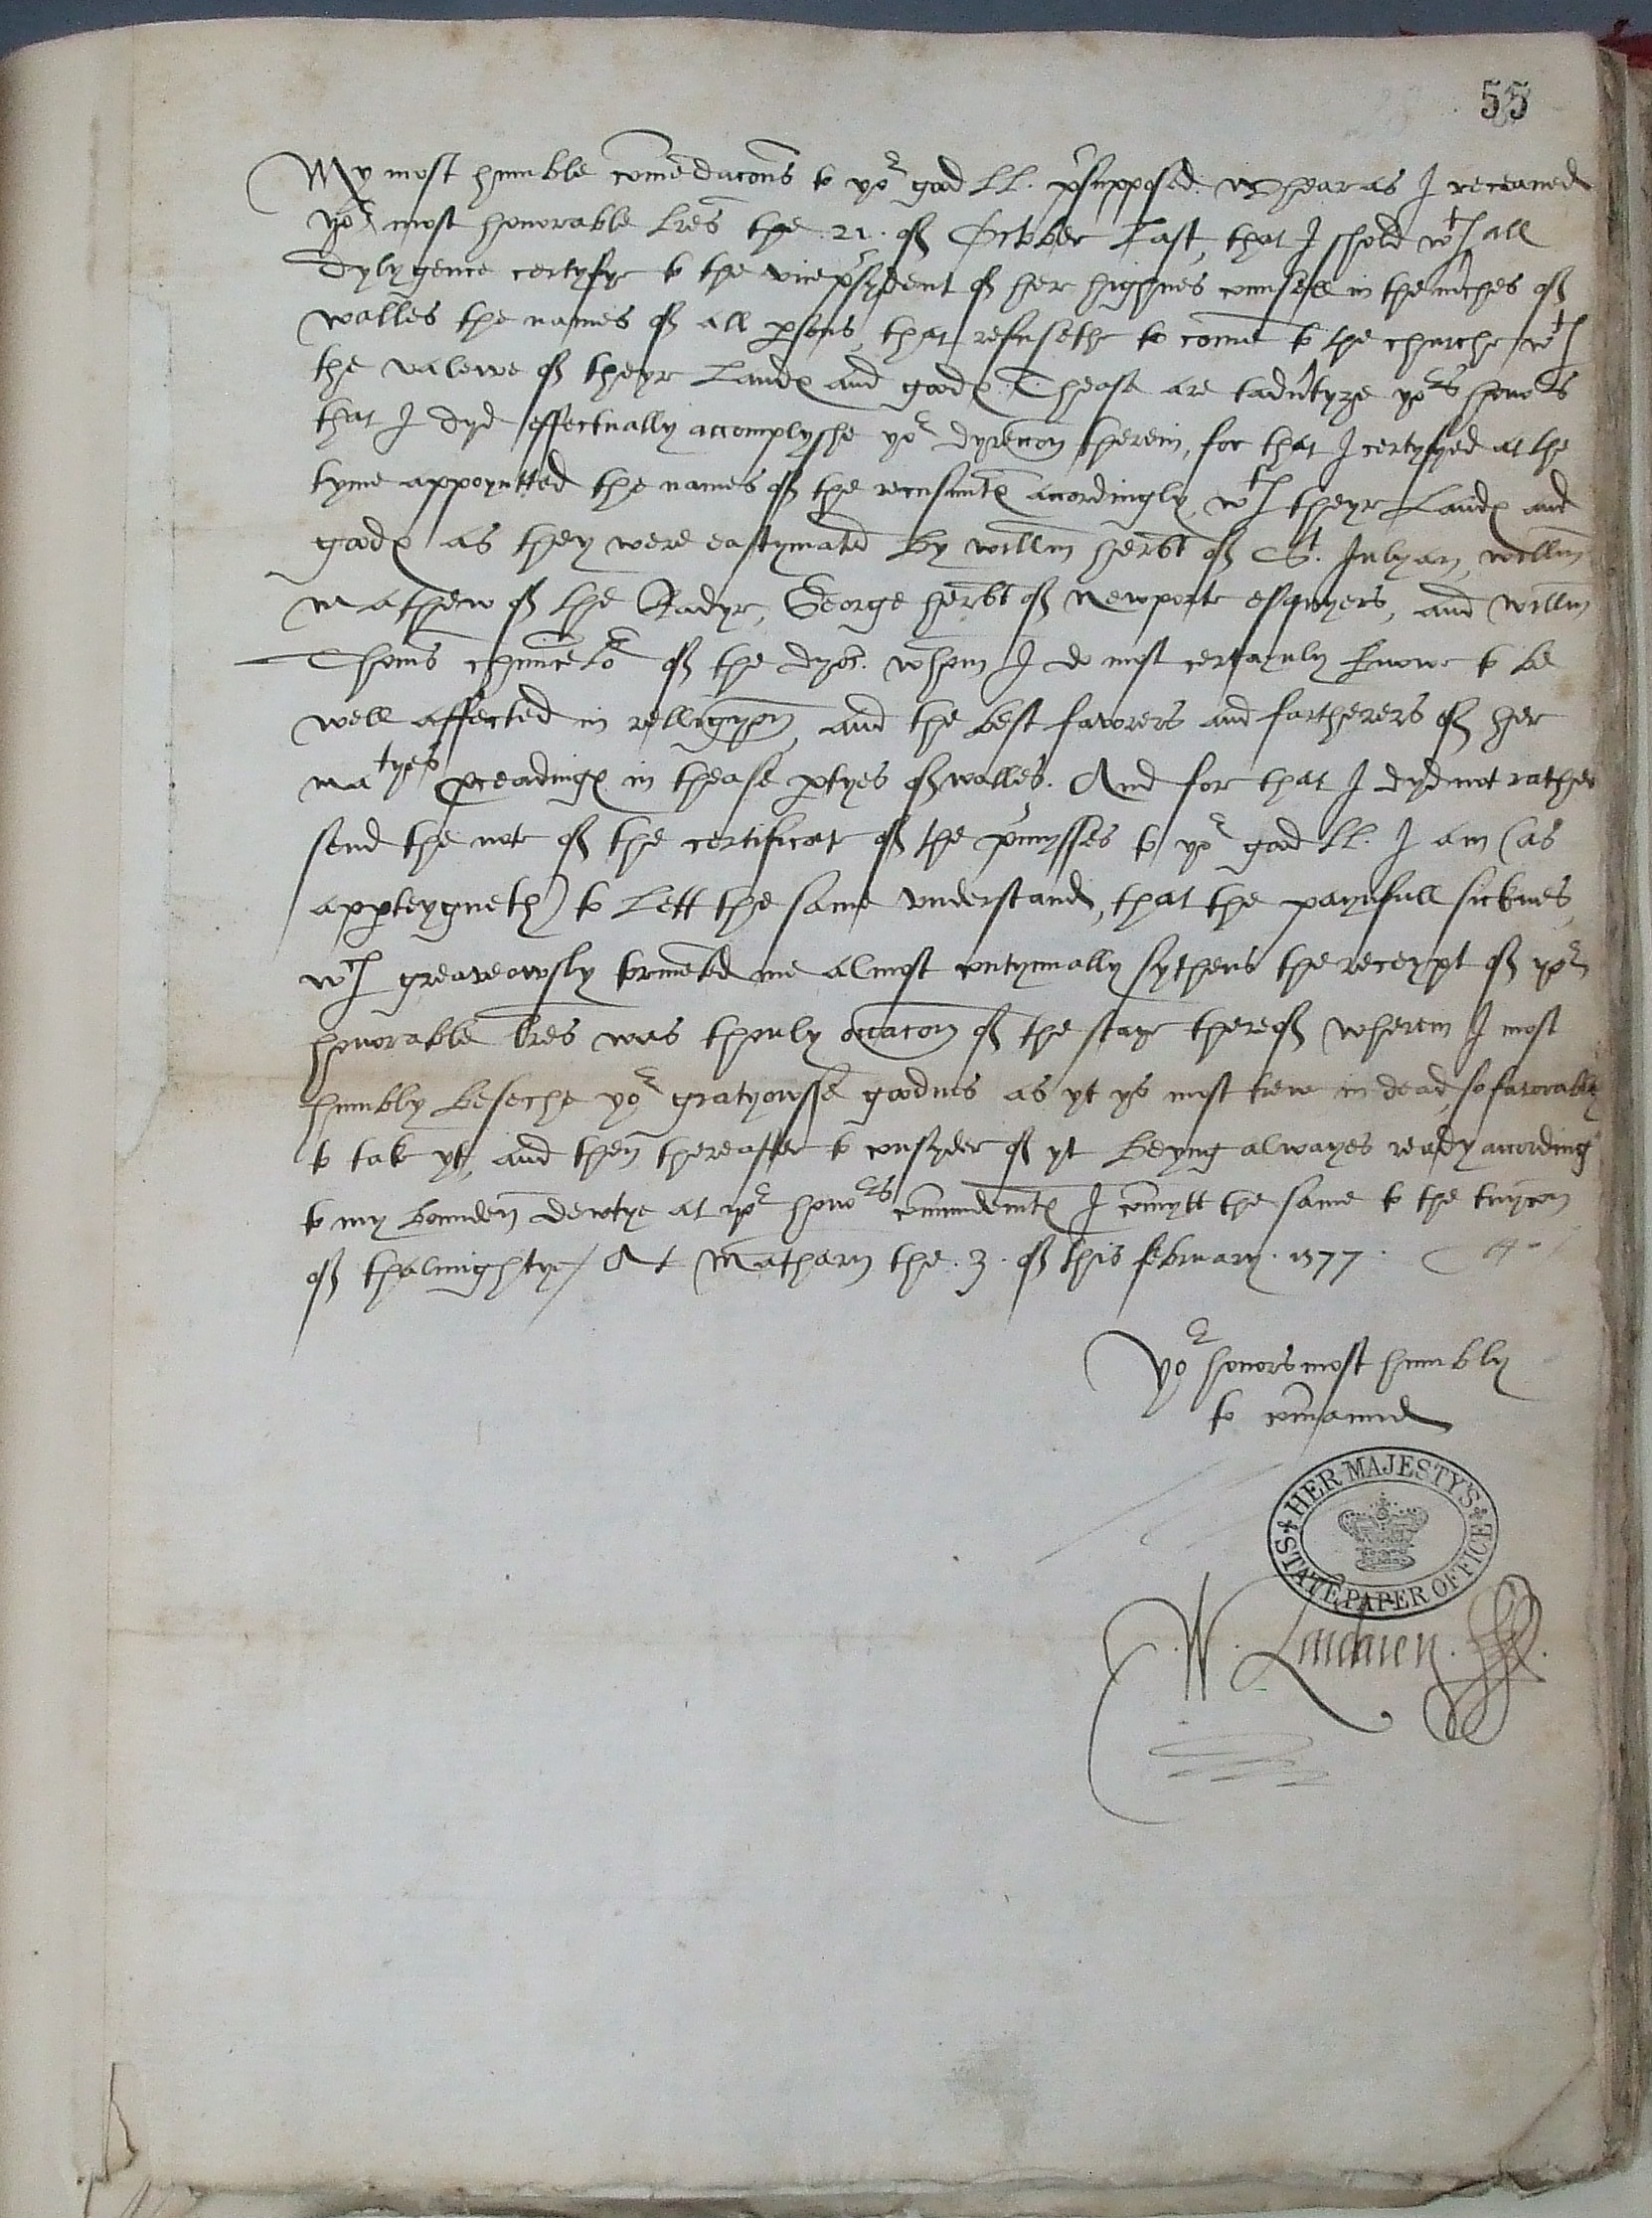 55
My most humble comēdacons to yor good LL. p̄supposed. Whearas I receaued
yor most honorable Lres the .21. of October Last, that I shold wth all
dylygence certyfye to the vice p̄sydent of her highnes counsell in the m̄ches of
walles the names of all psons that refusethe to come to the churche wth
the valewe of theyr Landes and goodes. Thease are tadūtyze yor honors
that I dyd effectually accomplyshe yor dyreccon therein, for that I certyfyed at the
tyme appoyntted the names of the recusantes accordingly, wth theyr Landes and
goodes as they were eastymated by willm herbt of St. Julyan, willm
mathew of the Radyr, George herbt of Newporte esquyers, and willm
Thoms chauncelor of the dyoc. whom I do most certaynly knowe to be
well affected in relligyon, and the best favorers and furtherers of her
matyes pceadinges in thease ptyes of walles. And for that I dyd not rather
send the note of the certificat of the p̄mysses to yor good LL. I am (as
appteygneth) to Lett the same vnderstand, that the paynfull sicknes,
wch greaveowsly tormēted me almost contynually sythens the receypt of yor
honorable Lres was thonly occacon of the staye thereof wherein I most
humbly beseche yor gratyousse goodnes as yt ys most trew in dead, so favorably
to take yt, and then thereafter to consyder of yt beyng alwayes ready according
to my bounden dewtye at yor honors com̄undemtes I com̄ytt the same to the tuycon
of thalmightye / At Matharn the .3. of this february. 1577.
Yor honors most humbly
to com̄aund
HER MAJESTY'S STATE PAPER OFFICE
W. Landaven.